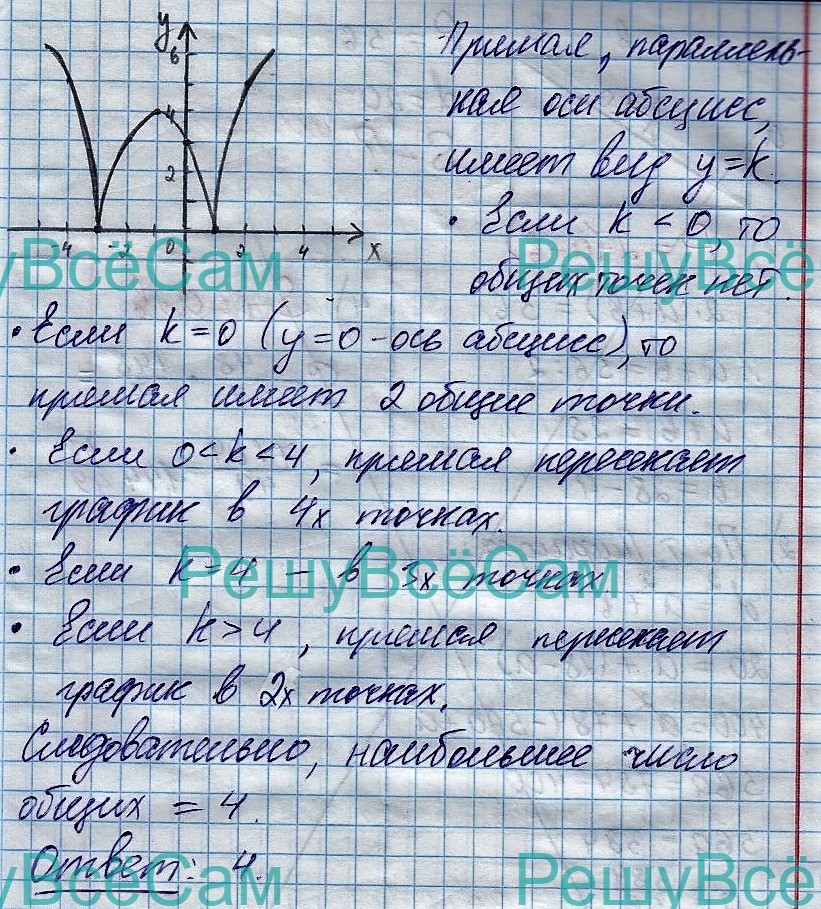 y
6
4
2
-4 -2 0 2 4 x
Прямая, параллель-
ная оси абсцисс,
имеет вид y=k.
• Если k < 0, то
общих точек нет.
• Если k=0 (y=0 - ось абсцисс), то
прямая имеет 2 общие точки.
• Если 0<k<4, прямая пересекает
график в 4х точках.
• Если k=4 – в 3х точках
• Если k>4, прямая пересекает
график в 2х точках.
Следовательно, наибольшее число
общих = 4.
Ответ: 4.
уВсёСам РешуВсё
РешуВсёСам
уВсёСам РешуВсё